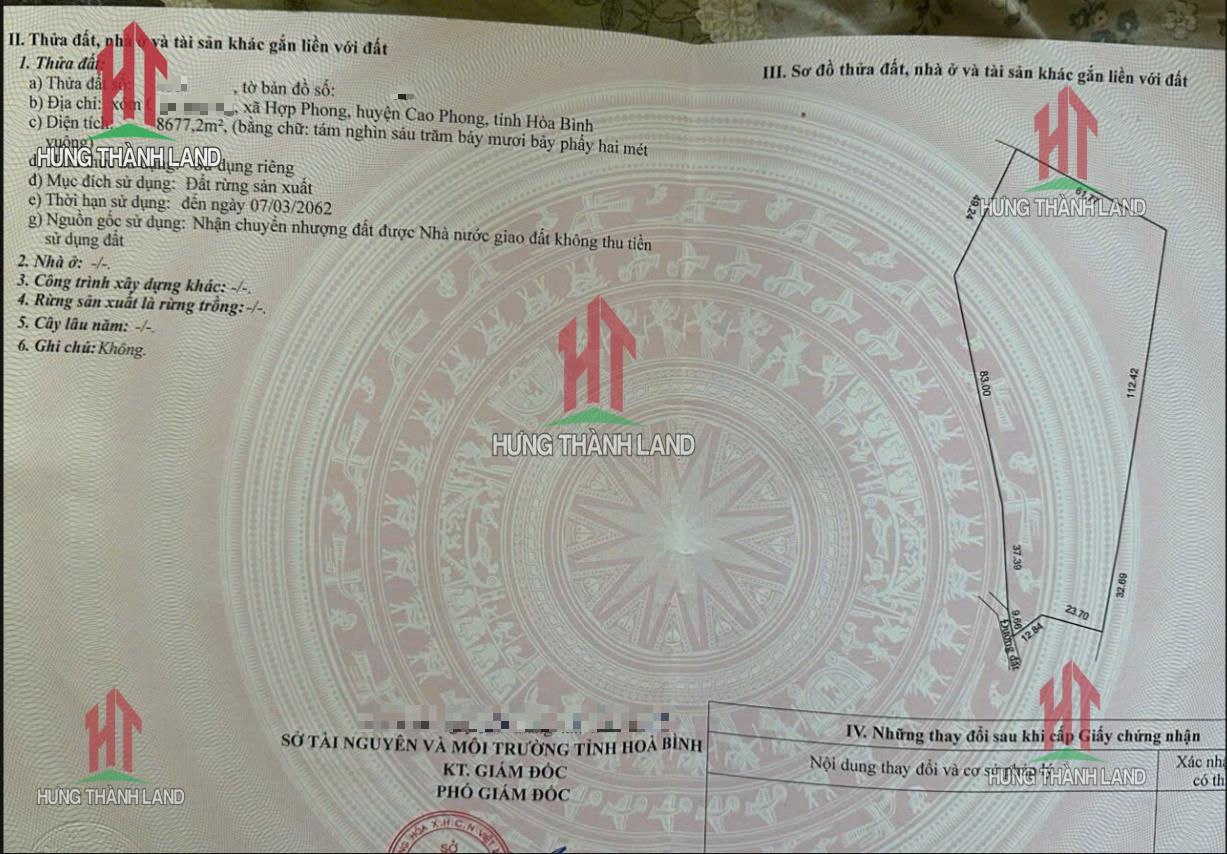 II. Thửa đất, nhà ở và tài sản khác gắn liền với đất
1. Thửa đất:
a) Thửa đất số: , tờ bản đồ số:
b) Địa chỉ: xóm , xã Hợp Phong, huyện Cao Phong, tỉnh Hòa Bình
c) Diện tích: 8677,2m², (bằng chữ: tám nghìn sáu trăm bảy mươi bảy phẩy hai mét
vuông)
dụng riêng
đ) Mục đích sử dụng: Đất rừng sản xuất
e) Thời hạn sử dụng: đến ngày 07/03/2062
g) Nguồn gốc sử dụng: Nhận chuyển nhượng đất được Nhà nước giao đất không thu tiền
sử dụng đất
2. Nhà ở: -/-.
3. Công trình xây dựng khác: -/-.
4. Rừng sản xuất là rừng trồng: -/-.
5. Cây lâu năm: -/-.
6. Ghi chú: Không.
HƯNG THÀNH LAND
III. Sơ đồ thửa đất, nhà ở và tài sản khác gắn liền với đất
HƯNG THÀNH LAND
49.24
83.00
112.42
37.39
32.69
9.66
12.84
23.70
Đường đất
HƯNG THÀNH LAND
SỞ TÀI NGUYÊN VÀ MÔI TRƯỜNG TỈNH HOÀ BÌNH
KT. GIÁM ĐỐC
PHÓ GIÁM ĐỐC
SỞ
HƯNG THÀNH LAND
IV. Những thay đổi sau khi cấp Giấy chứng nhận
Nội dung thay đổi và cơ sở pháp lý
Xác nh
có th
HƯNG THÀNH LAND